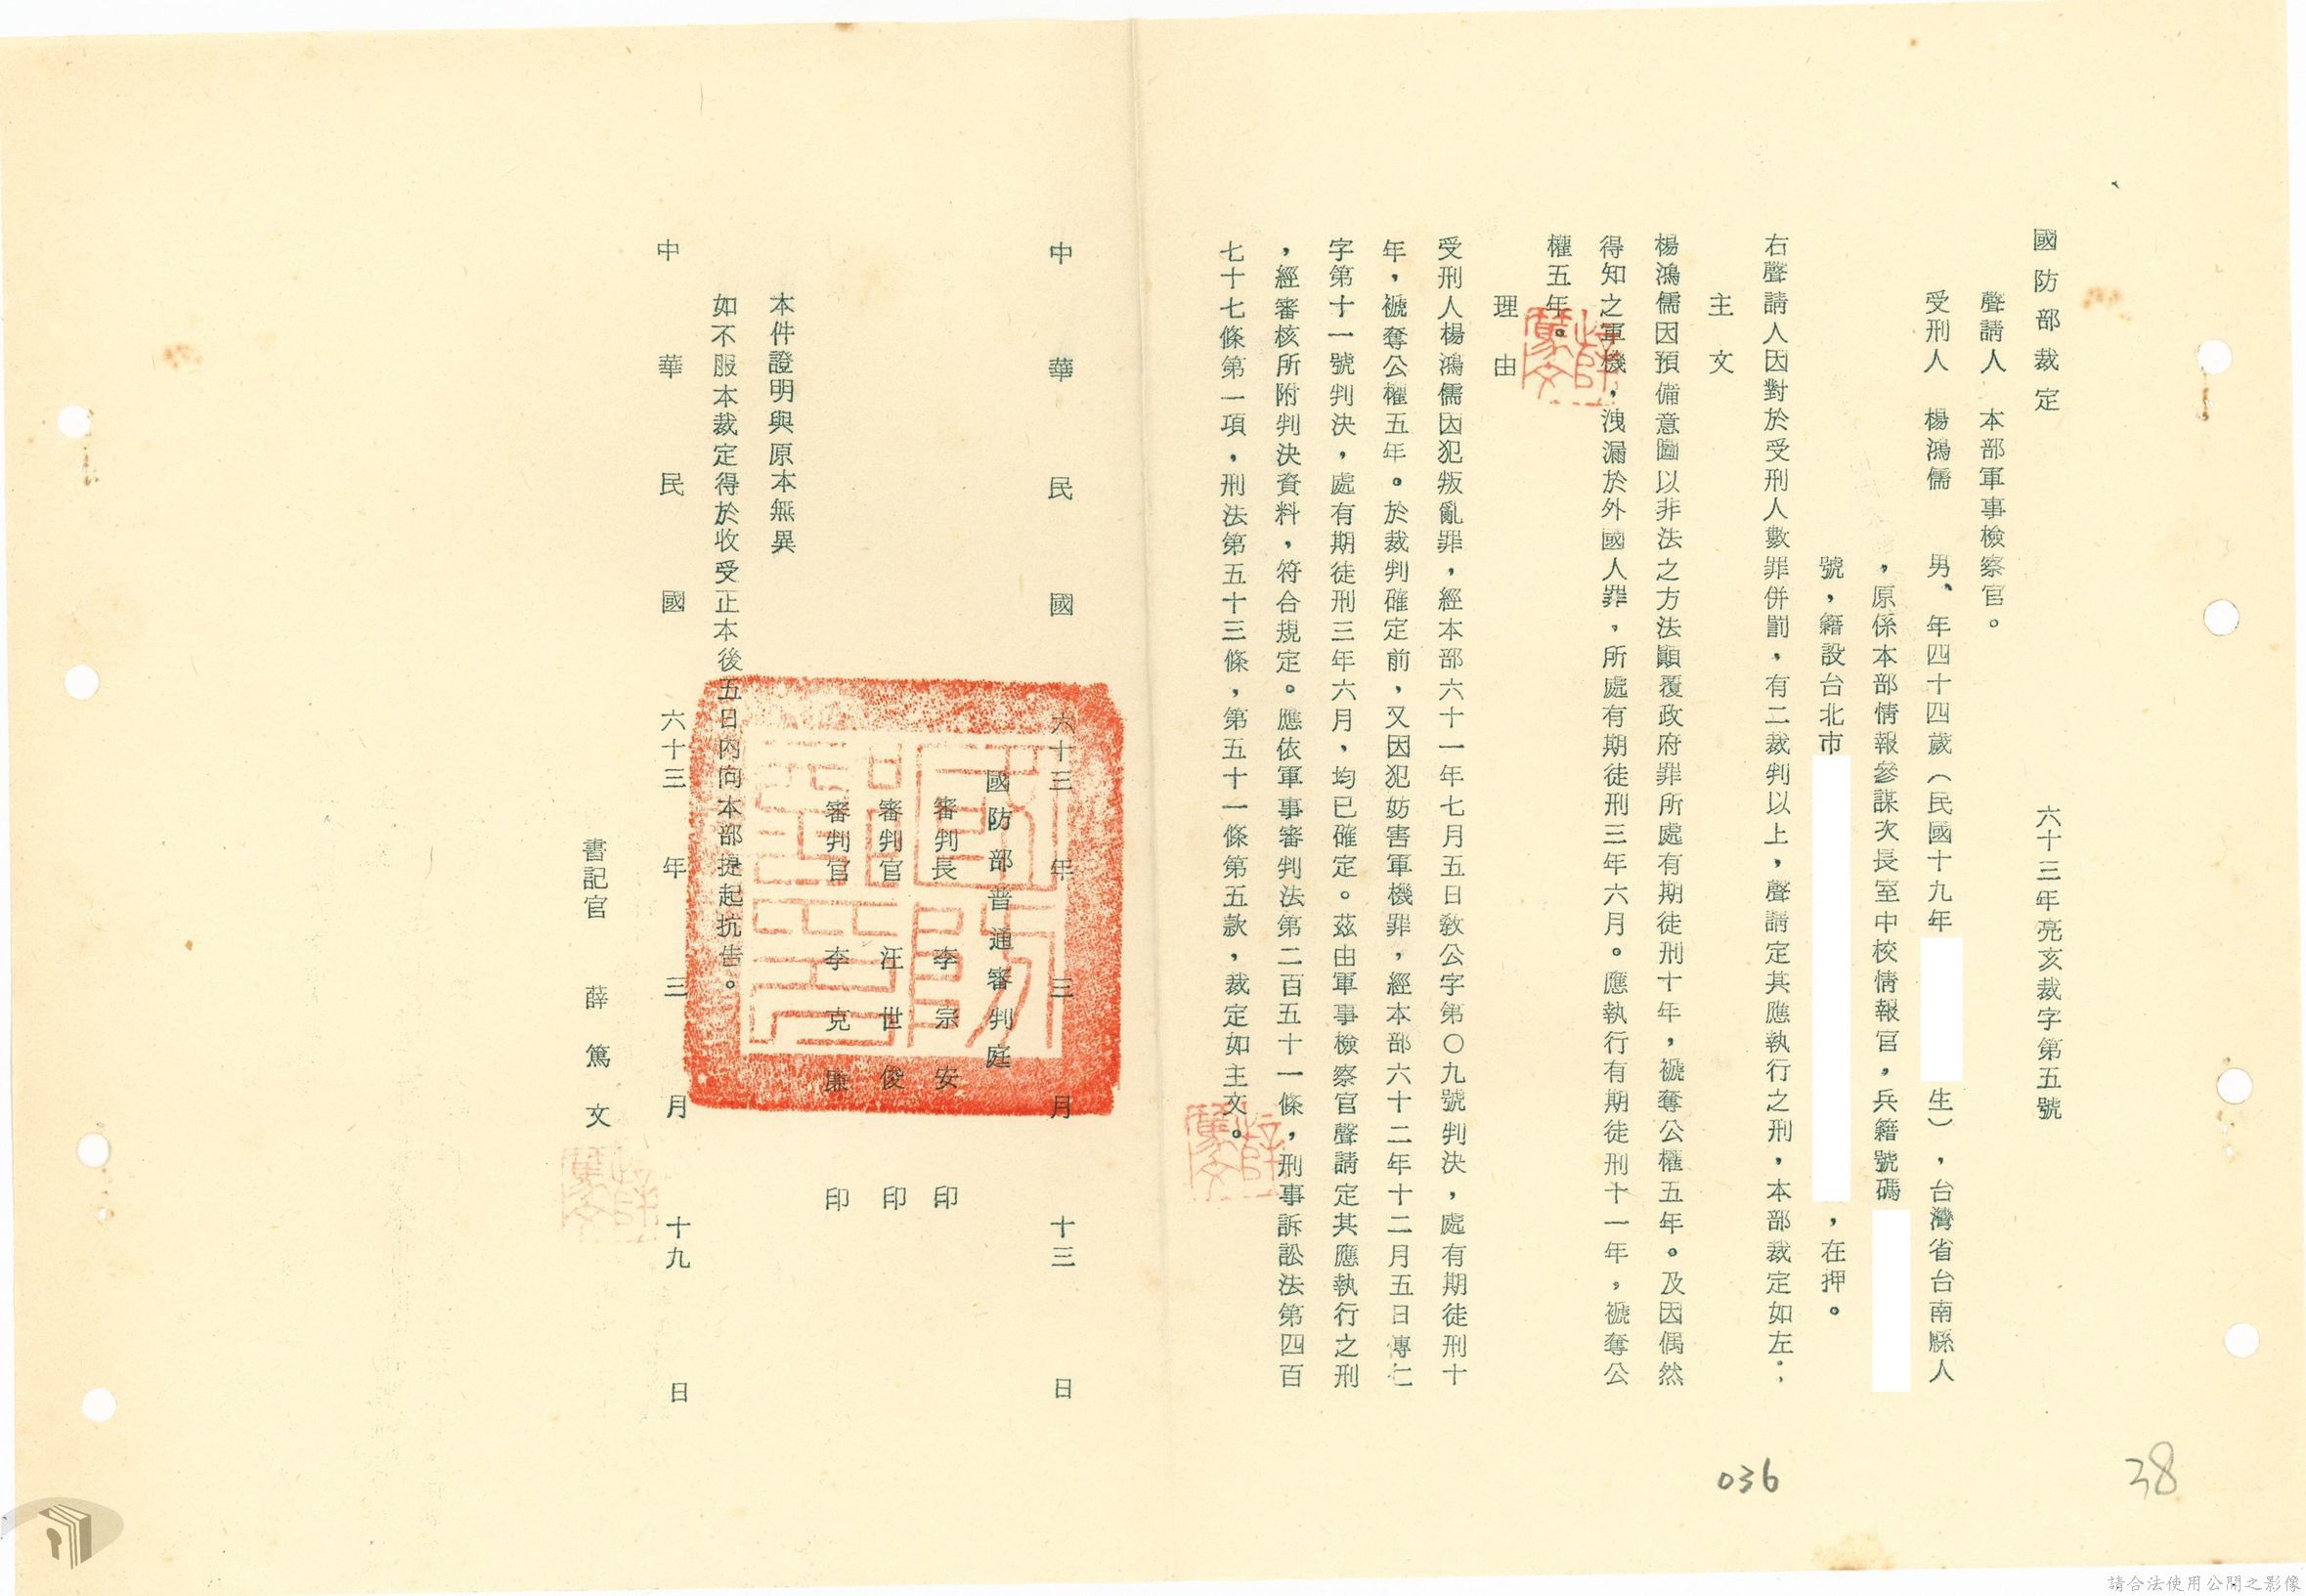 國防部裁定
六十三年亮亥裁字第五號
聲請人　本部軍事檢察官。
受刑人　楊鴻儒　男、年四十四歲（民國十九年　生），台灣省台南縣人
，原係本部情報參謀次長室中校情報官，兵籍號碼
號，籍設台北市　，在押。
右聲請人因對於受刑人數罪併罰，有二裁判以上，聲請定其應執行之刑，本部裁定如左：
主文
楊鴻儒因預備意圖以非法之方法顛覆政府罪所處有期徒刑十年，褫奪公權五年。及因偶然
得知之軍機，洩漏於外國人罪，所處有期徒刑三年六月。應執行有期徒刑十一年，褫奪公
權五年。
理由
受刑人楊鴻儒因犯叛亂罪，經本部六十一年七月五日敎公字第〇九號判決，處有期徒刑十
年，褫奪公權五年。於裁判確定前，又因犯妨害軍機罪，經本部六十二年十二月五日傳仁
字第十一號判決，處有期徒刑三年六月，均已確定。茲由軍事檢察官聲請定其應執行之刑
，經審核所附判決資料，符合規定。應依軍事審判法第二百五十一條，刑事訴訟法第四百
七十七條第一項，刑法第五十三條，第五十一條第五款，裁定如主文。
中華民國六十三年三月十三日
國防部普通審判庭
審判長　李宗安　印
審判官　汪世俊　印
審判官　李克廉　印
本件證明與原本無異
如不服本裁定得於收受正本後五日內向本部提起抗告。
中華民國六十三年三月十九日
書記官　薛篤文
036
38
請合法使用公開之影像